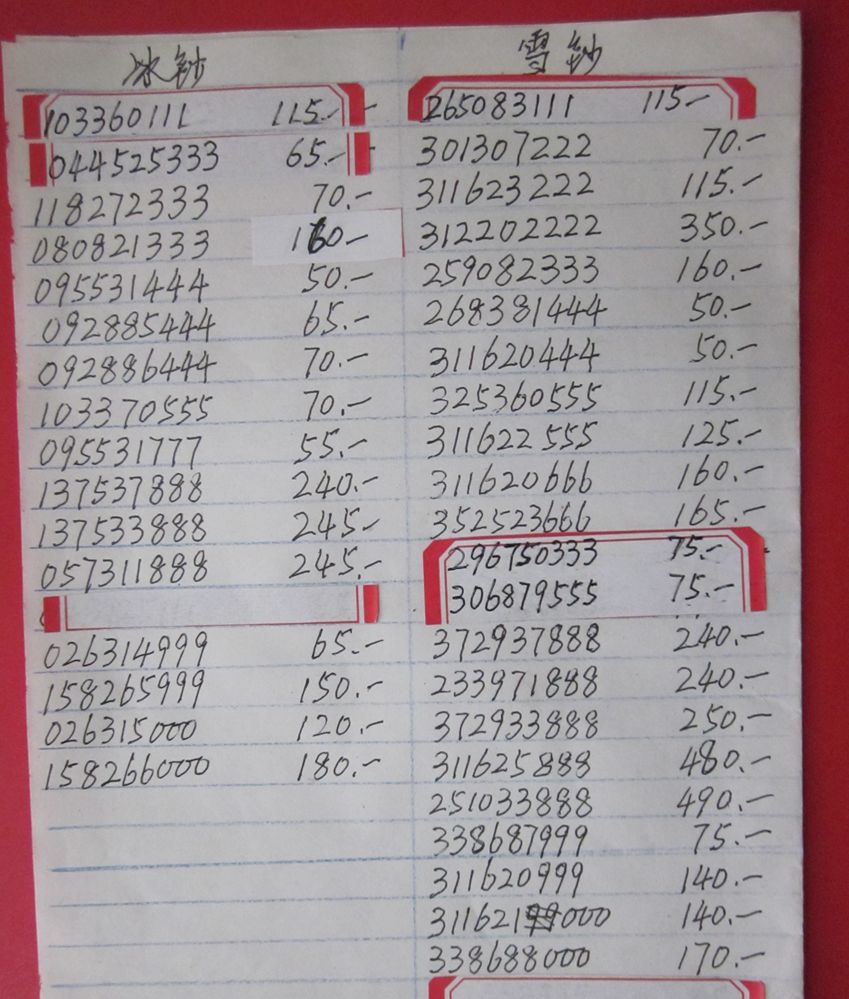 冰钞
103360111 115.-
044525333 65.-
118272333 70.-
080821333 160-
095531444 50.-
092885444 65.-
092886444 70.-
103370555 70.-
095531777 55.-
137537888 240.-
137533888 245-
057311888 245.-
026314999 65.-
158265999 150.-
026315000 120.-
158266000 180.-
雪钞
265083111 115.-
301307222 70.-
311623222 115.-
312202222 350.-
259082333 160.-
268381444 50.-
311620444 50.-
325360555 115.-
311622555 125.-
311620666 160.-
352523666 165.-
296750333 75.-
306879555 75.-
372937888 240.-
233971888 240.-
372933888 250.-
311625888 480.-
251033888 490.-
338687999 75.-
311620999 140.-
311621000 140.-
338688000 170.-